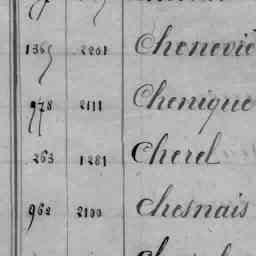 1365 2201 Chenevié
978 2111 Chenique
263 1281 Cherel
962 2100 Chesnais